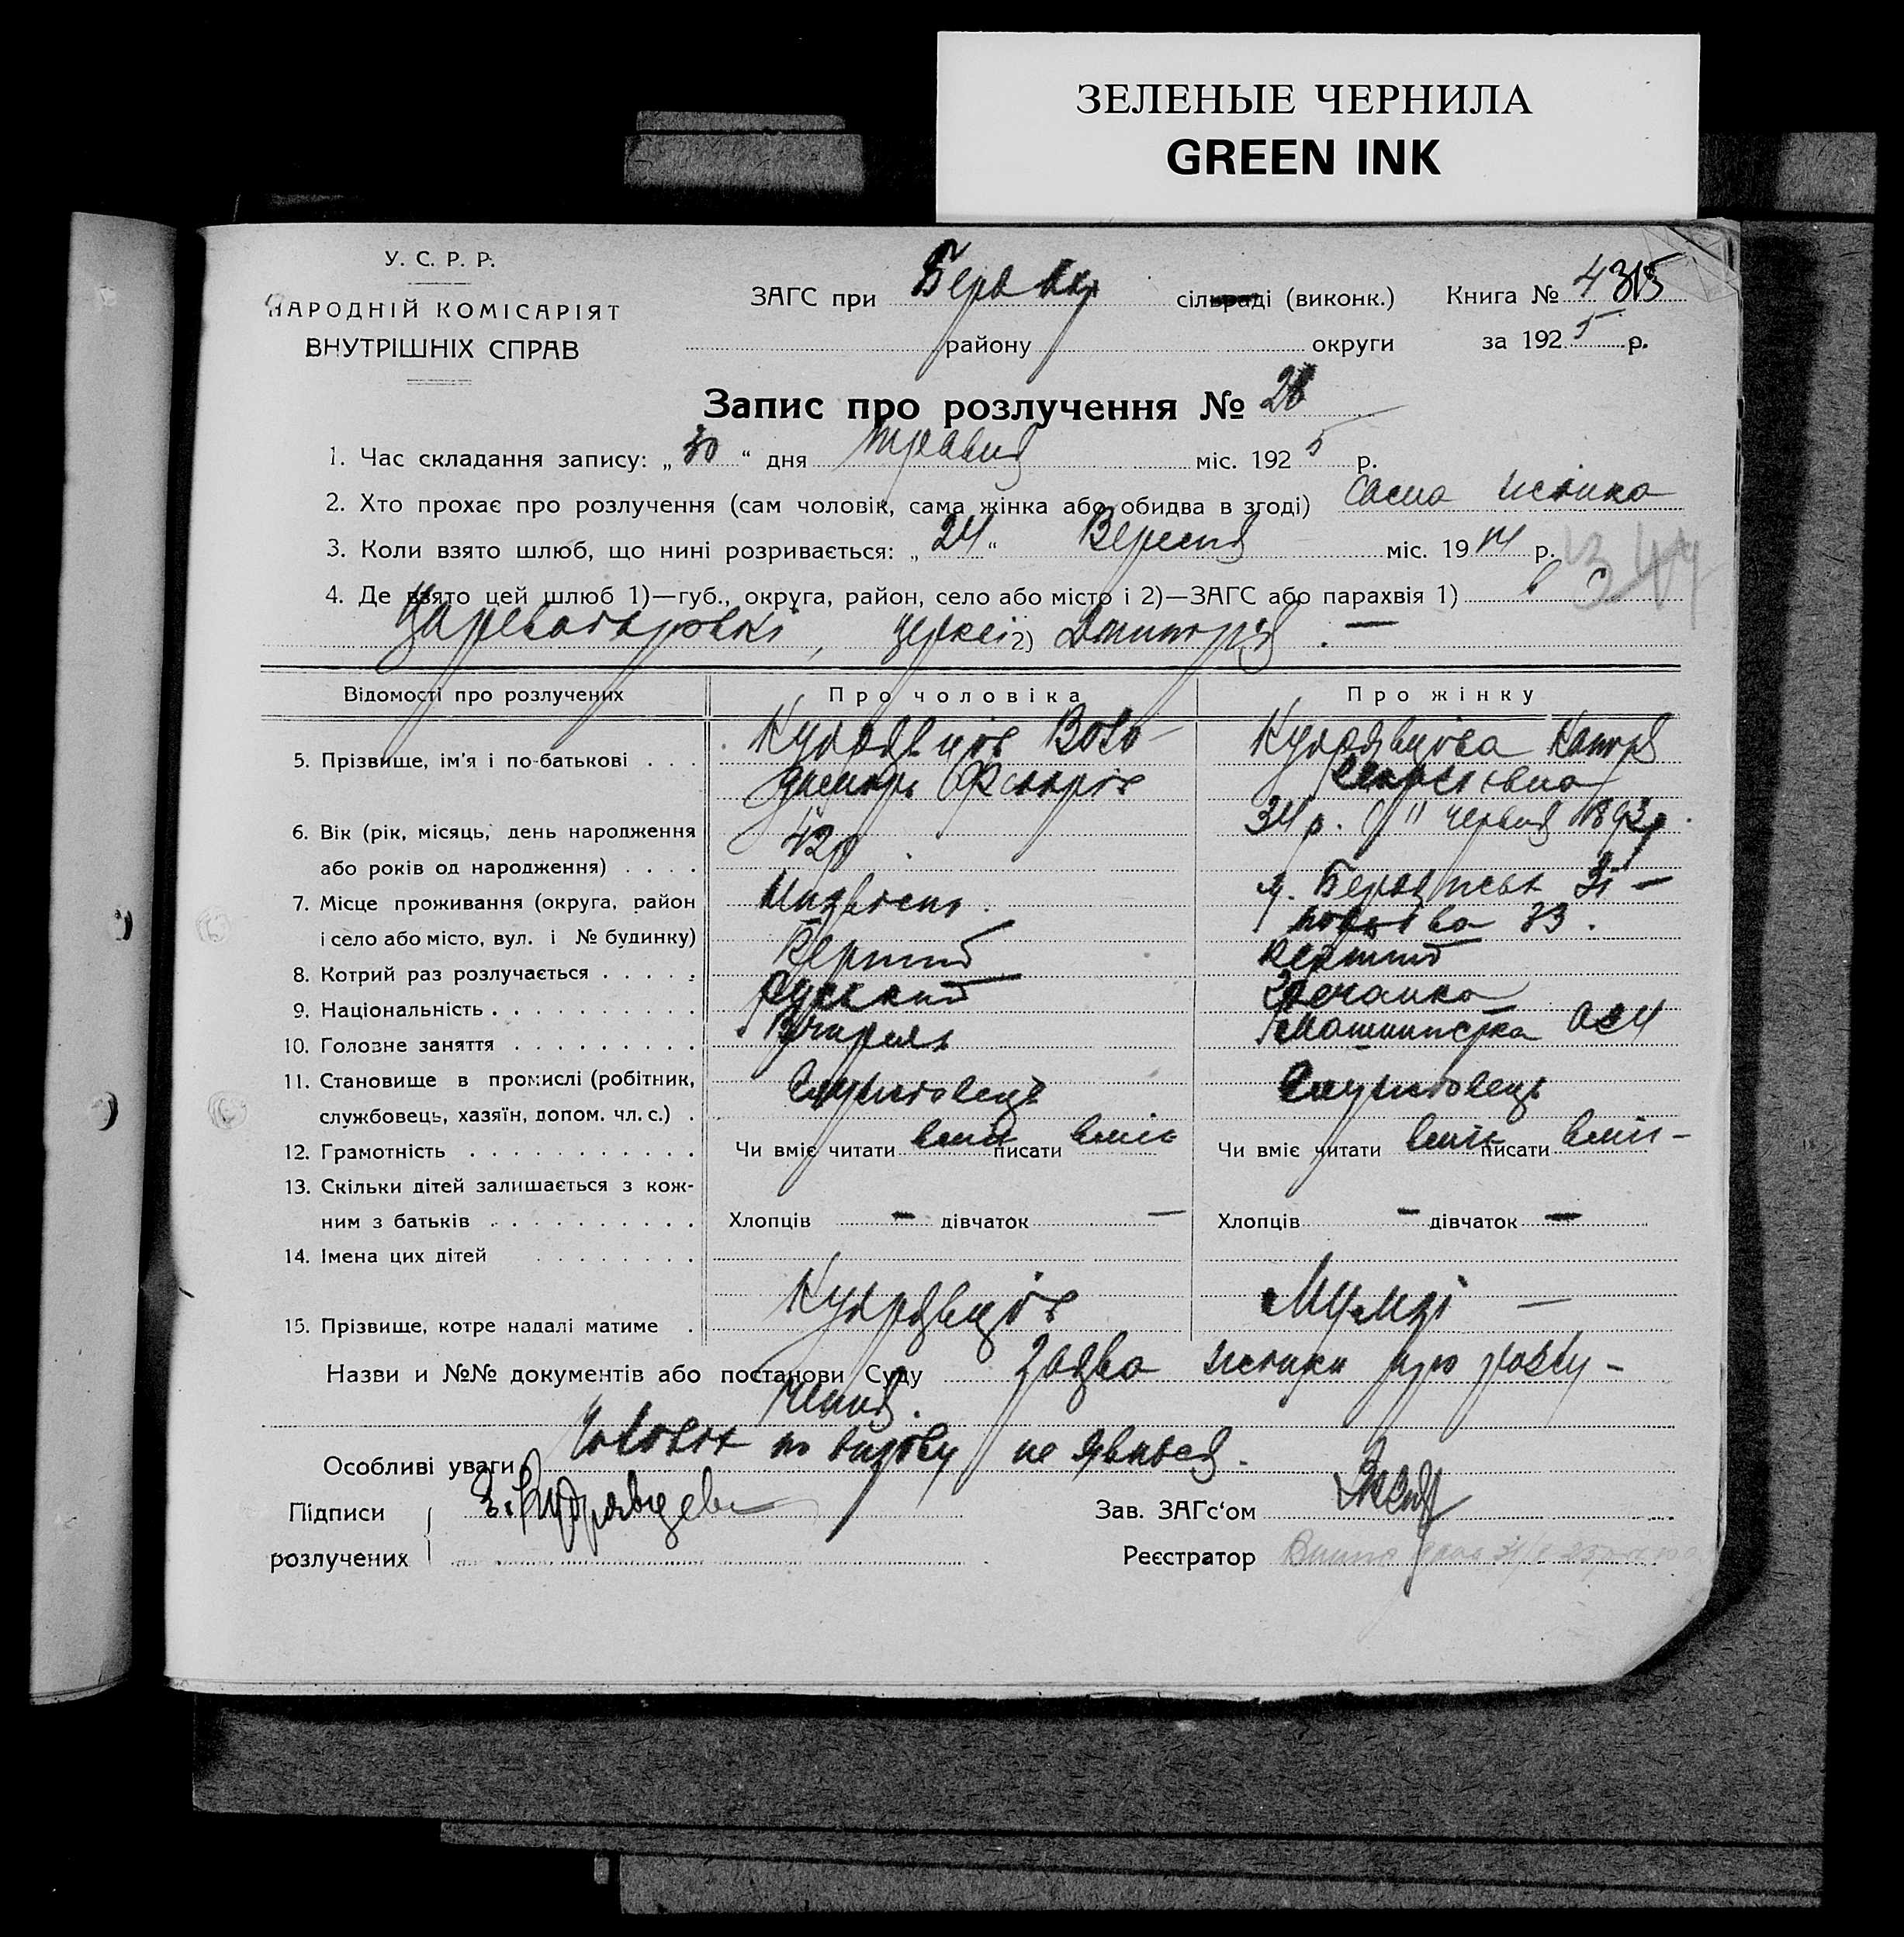 ЗЕЛЕНЫЕ ЧЕРНИЛА
GREEN INK
У. С. Р. Р.
НАРОДНІЙ КОМІСАРІЯТ
ВНУТРІШНІХ СПРАВ
ЗАГС при сільраді (виконк.) Книга № 4315
району округи за 1925 р.
Запис про розлучення №
1. Час складання запису: „30“ дня травня міс. 1925 р.
2. Хто прохає про розлучення (сам чоловік, сама жінка або обидва в згоді) сама жінка
3. Коли взято шлюб, що нині розривається: „24“ Вересня міс. 1914 р.
4. Де взято цей шлюб 1)—губ., округа, район, село або місто і 2)—ЗАГС або парахвія 1) в с
церкві 2) Дмитрія. —
Відомості про розлучених Про чоловіка Про жінку
5. Прізвище, ім'я і по-батькові . . . Кудрявцов Воло- Кудрявцова
димир
6. Вік (рік, місяць, день народження 34 р. 11 червня 1893 р.
або років од народження) . . . . 42 р.
7. Місце проживання (округа, район Невідомо. м. Бердянськ Зі-
і село або місто, вул. і № будинку) 33.
8. Котрий раз розлучається . . . . . Перший Перший
9. Національність . . . . . . . . . . Руський Гречанка
10. Головне заняття . . . . . . . . . Вчитель Машиністка
11. Становище в промислі (робітник, Службовець Службовець
службовець, хазяїн, допом. чл. с.) .
12. Грамотність . . . . . . . . . . . Чи вміє читати вміє писати вміє Чи вміє читати вміє писати вміє -
13. Скільки дітей залишається з кож-
ним з батьків . . . . . . . . . . Хлопців — дівчаток — Хлопців — дівчаток —
14. Імена цих дітей . . . . . . .
15. Прізвище, котре надалі матиме . Кудрявцов —
Назви и №№ документів або постанови Суду Заява жінки про розлу-
чення.
Особливі уваги Чоловік по визову не явився.
Підписи Кудрявцева Зав. ЗАГс‘ом
розлучених Реєстратор